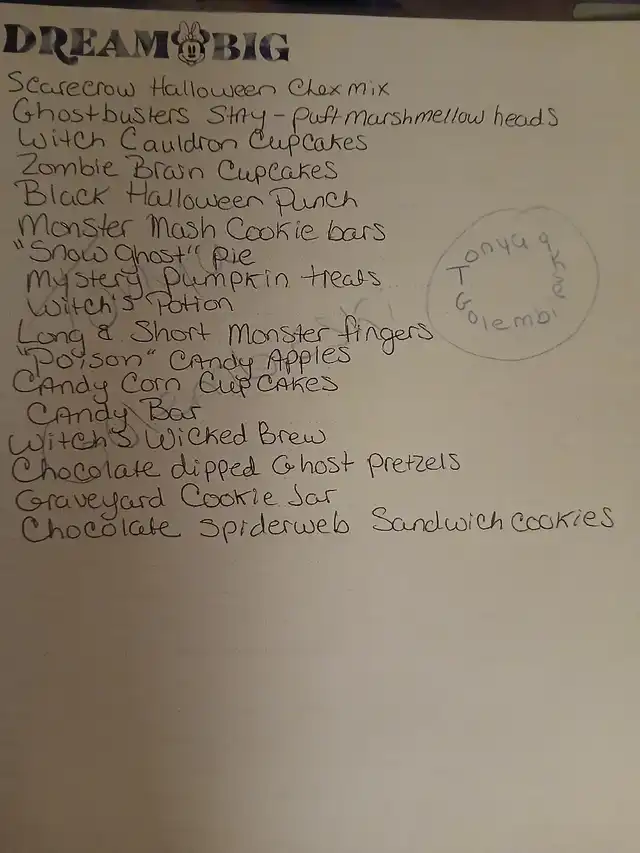 DREAM BIG
Scarecrow Halloween Chex mix
Ghostbusters Stay-puft marshmellow heads
Witch Cauldron Cupcakes
Zombie Brain Cupcakes
Black Halloween Punch
Monster Mash Cookie bars
"Snow Ghost" pie
Mystery pumpkin treats
Witch's Potion
Long & Short Monster fingers
"Poison" Candy Apples
Candy Corn Cupcakes
Candy Bar
Witch's Wicked Brew
Chocolate dipped Ghost pretzels
Graveyard Cookie Jar
Chocolate Spiderweb Sandwich cookies
Tonya
Golembi